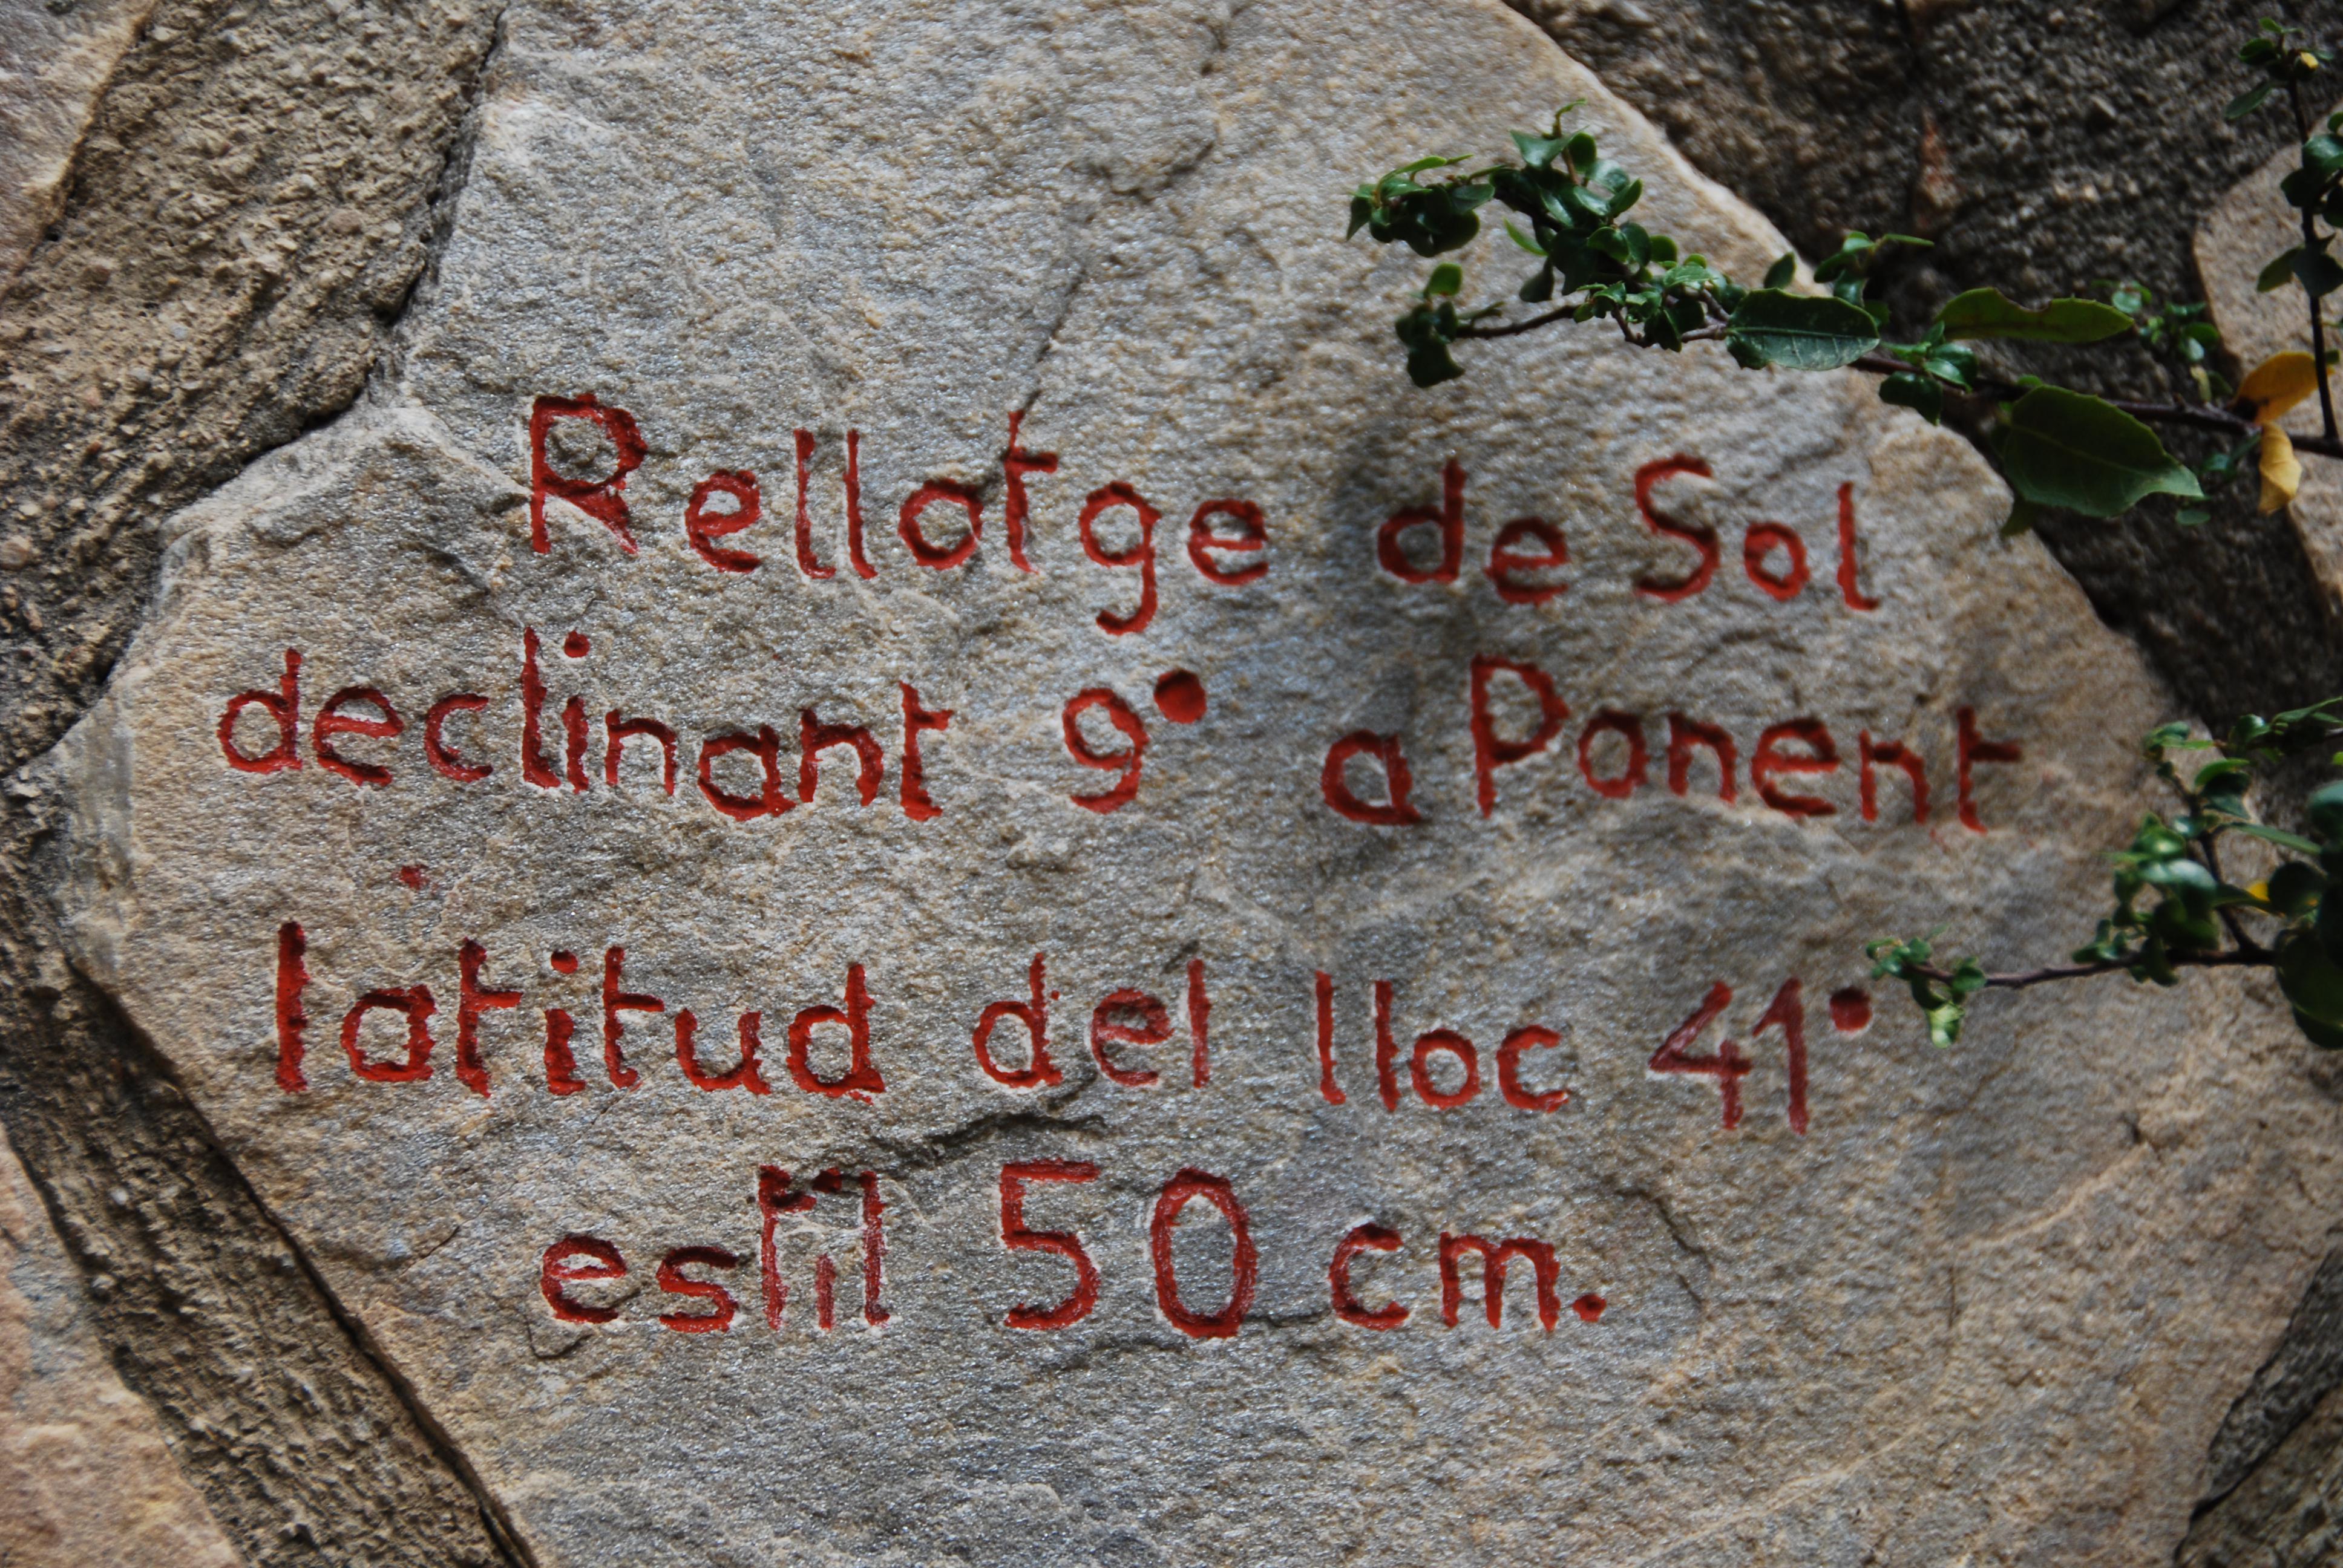 Rellotge de Sol
declinant 9° a Ponent
latitud del lloc 41°
estil 50 cm.